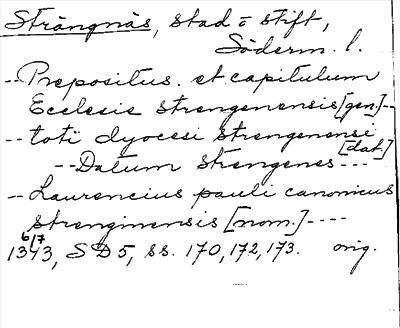 Strängnäs, stad o stift,
Söderm. l.
--Prepositus. et capitulum
Ecclesie strengenensis [gen.]--
--toti dyocesi strengenensi
[dat]
--Datum strengenes---
--Laurencius pauli canonicus
strenginensis [nom.]----
6/7
1343, SD5, ss. 170, 172, 173. orig.